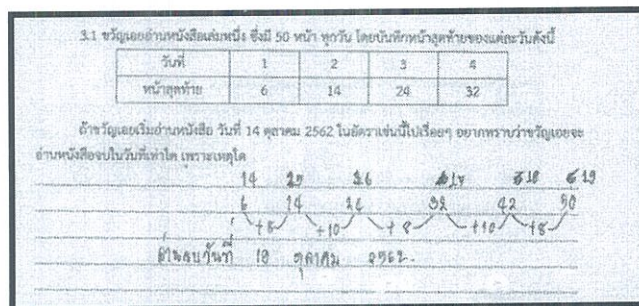 3.1 ขวัญเอยอ่านหนังสือเล่มหนึ่ง ซึ่งมี 50 หน้า ทุกวัน โดยบันทึกหน้าสุดท้ายของแต่ละวันดังนี้
วันที่ 1 2 3 4
หน้าสุดท้าย 6 14 24 32
ถ้าขวัญเอยเริ่มอ่านหนังสือ วันที่ 14 ตุลาคม 2562 ในอัตราเช่นนี้ไปเรื่อยๆ อยากทราบว่าขวัญเอยจะ
อ่านหนังสือจบในวันที่เท่าใด เพราะเหตุใด
14
6 14 24 32 42 50
+8 +10 +8 +10 +8
อ่านจบวันที่ 19 ตุลาคม 2562.